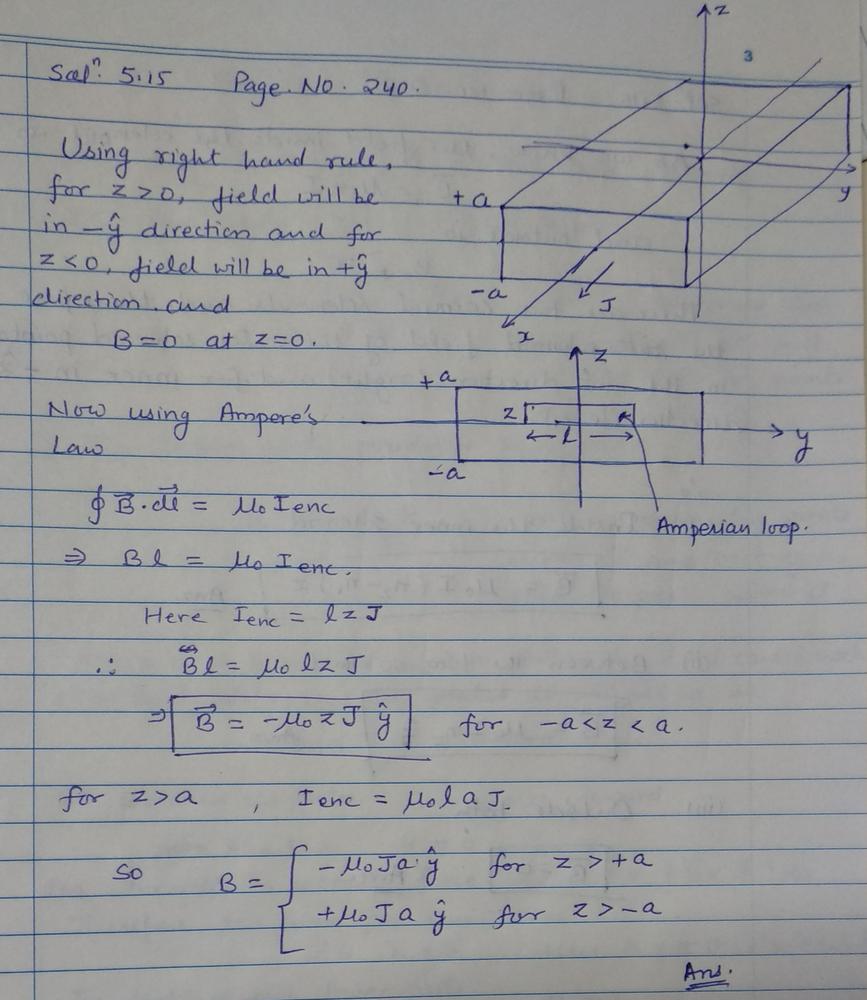 3
Solⁿ. 5.15 Page. No. 240.
Using right hand rule,
for z>0, field will be
in -ŷ direction and for
z<0, field will be in +ŷ
direction and
B=0 at z=0.
z
+a
-a
y
J
x
Now using Ampere's
Law
z
+a
z
l
y
-a
Amperian loop.
∮ B⃗·dl⃗ = μ₀ Ienc
⇒ Bl = μ₀ Ienc.
Here Ienc = lzJ
∴ Bl = μ₀ lzJ
⇒ B⃗ = -μ₀zJ ŷ for -a<z<a.
for z>a , Ienc = μ₀laJ.
So B = { -μ₀Ja·ŷ for z>+a
+μ₀Ja ŷ for z>-a
Ans.